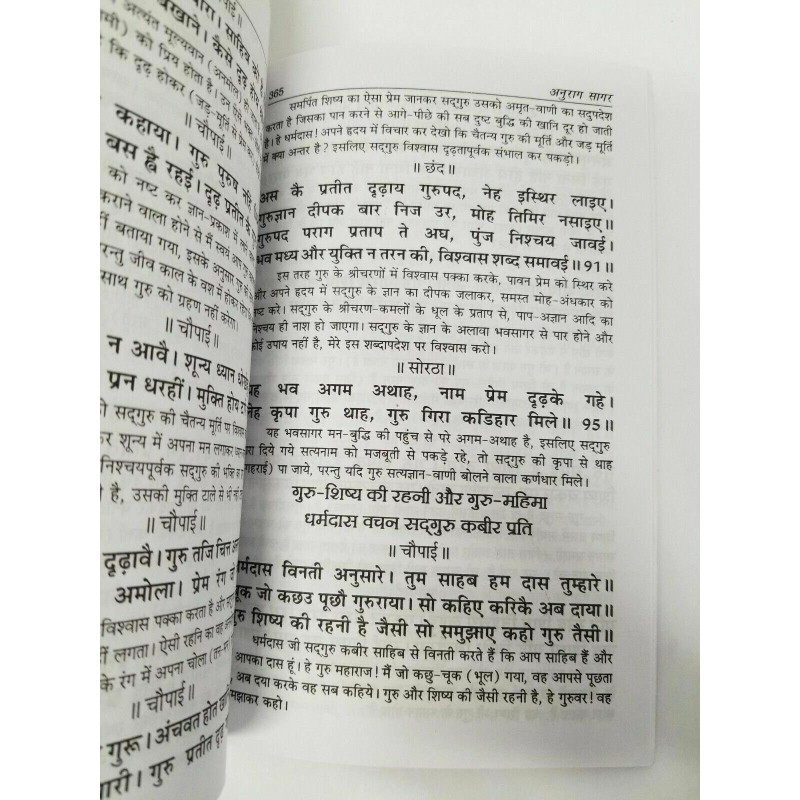 पारा। साहिब की
बखाने। कैसे दृढ़ ह
अत्यंत मूल्यवान (अनमोल)
मी) को प्रिय होता है। उन ऐसे
कि दृढ़ होकर (जड़-मूर्ति से
॥ चौपाई॥
कहाया। गुरु पुरुष नहिं
बस ह्वै रहई। दृढ़ प्रतीत के
को नष्ट कर ज्ञान-प्रकाश में
कराने वाला होने से मैं स्वयं आप
में बताया गया, इसके अनुसार गुरु की
रन्तु जीव काल के वश में होकर
साथ गुरु को ग्रहण नहीं करेगा।
॥ चौपाई॥
न आवै। शून्य ध्यान
प्रन धरहीं। मुक्ति होय
सद्गुरु की चैतन्य मूर्ति पर
कर शून्य में अपना मन लगाकर
निश्चयपूर्वक सद्गुरु को भक्ति
है, उसकी मुक्ति टाले से भी नहीं
॥ चौपाई॥
दृढ़ावै। गुरु तजि चित्त
अमोला। प्रेम रंग
विश्वास पक्का करता है और
हीं लगता। ऐसी रहनि का वह
के रंग में अपना चोला (तन-
॥ चौपाई॥
गुरू। अंचवत होत
गारी। गुरु प्रतीत दृढ़
365 अनुराग सागर
समर्पित शिष्य का ऐसा प्रेम जानकर सद्गुरु उसको अमृत-वाणी का सदुपदेश
करता है जिसका पान करने से आगे-पीछे की सब दुष्ट बुद्धि की खानि दूर हो जाती
है। हे धर्मदास! अपने हृदय में विचार कर देखो कि चैतन्य गुरु की मूर्ति और जड़ मूर्ति
में क्या अन्तर है? इसलिए सद्गुरु विश्वास दृढ़तापूर्वक संभाल कर पकड़ो।
॥ छंद॥
अस कै प्रतीत दृढ़ाय गुरुपद, नेह इस्थिर लाइए।
गुरुज्ञान दीपक बार निज उर, मोह तिमिर नसाइए॥
गुरुपद पराग प्रताप ते अघ, पुंज निश्चय जावई।
भव मध्य और युक्ति न तरन की, विश्वास शब्द समावई॥ 91॥
इस तरह गुरु के श्रीचरणों में विश्वास पक्का करके, पावन प्रेम को स्थिर करे
और अपने हृदय में सद्गुरु के ज्ञान का दीपक जलाकर, समस्त मोह-अंधकार को
नष्ट करे। सद्गुरु के श्रीचरण-कमलों के धूल के प्रताप से, पाप-अज्ञान आदि का
निश्चय ही नाश हो जाएगा। सद्गुरु के ज्ञान के अलावा भवसागर से पार होने और
कोई उपाय नहीं है, मेरे इस शब्दापदेश पर विश्वास करो।
॥ सोरठा॥
यह भव अगम अथाह, नाम प्रेम दृढ़के गहे।
लेह कृपा गुरु थाह, गुरु गिरा कडिहार मिले॥ 95॥
यह भवसागर मन-बुद्धि की पहुंच से परे अगम-अथाह है, इसलिए सद्गुरु
रा दिये गये सत्यनाम को मजबूती से पकड़े रहे, तो सद्गुरु की कृपा से थाह
गहराई) पा जाये, परन्तु यदि गुरु सत्यज्ञान-वाणी बोलने वाला कर्णधार मिले।
गुरु-शिष्य की रहनी और गुरु-महिमा
धर्मदास वचन सद्गुरु कबीर प्रति
॥ चौपाई॥
धर्मदास विनती अनुसारे। तुम साहब हम दास तुम्हारे॥
चूक जो कछउ पूछौ गुरुराया। सो कहिए करिकै अब दाया॥
गुरु शिष्य की रहनी है जैसी सो समुझाए कहो गुरु तैसी॥
धर्मदास जी सद्गुरु कबीर साहिब से विनती करते हैं कि आप साहिब हैं और
आपका दास हूं। हे गुरु महाराज! मैं जो कछु-चूक (भूल) गया, वह आपसे पूछता
, अब दया करके वह सब कहिये। गुरु और शिष्य की जैसी रहनी है, हे गुरुवर! वह
मझाकर कहो।